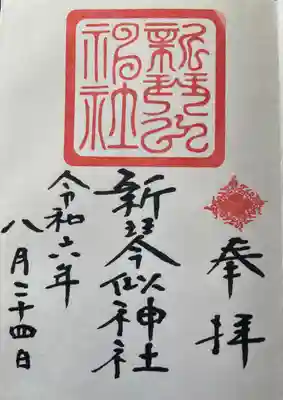 奉拝
新琴似神社
令和六年
八月二十四日
新琴似
神社